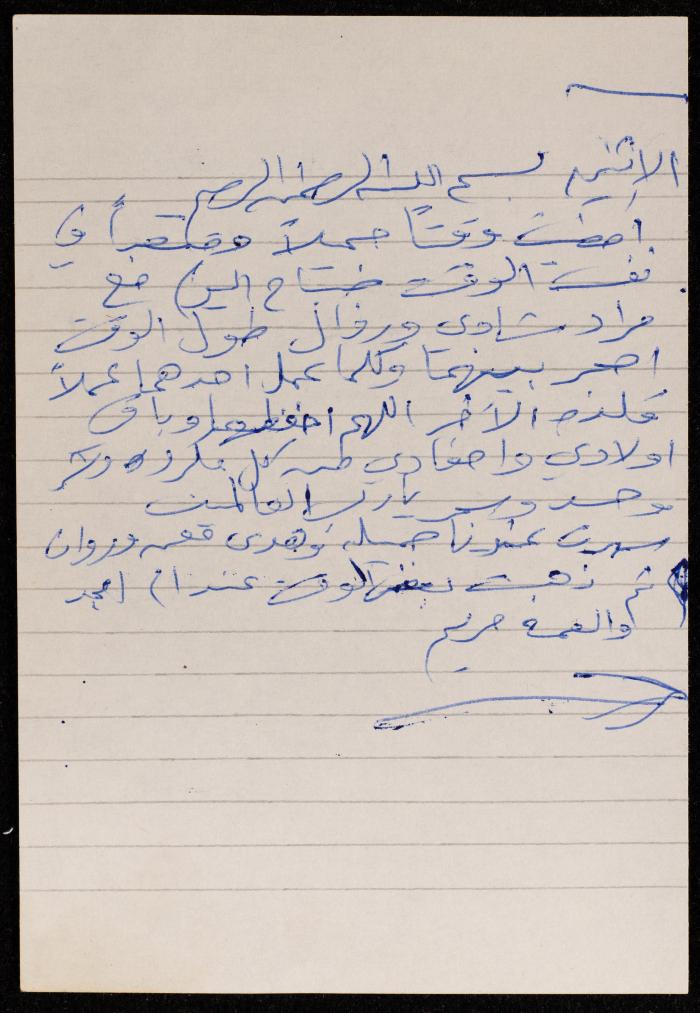 الاثنين بسم الله الرحمن الرحيم
امضيت وقتاً جميلاً ومتعباً في
نفس الوقت صباح اليوم مع
مراد شادي ونوال طول الوقت
احجز بينهما وكلما عمل احدهما عملاً
قلده الآخر اللهم احفظهما وباقي
اولادي واحفادي من كل مكروه وشر
وحسد وسر يارب العالمين
سهرت عندنا جميله وهدى قعمه وروان
ثم ذهبت بعض الوقت عند ام امجد
والعمة مريم